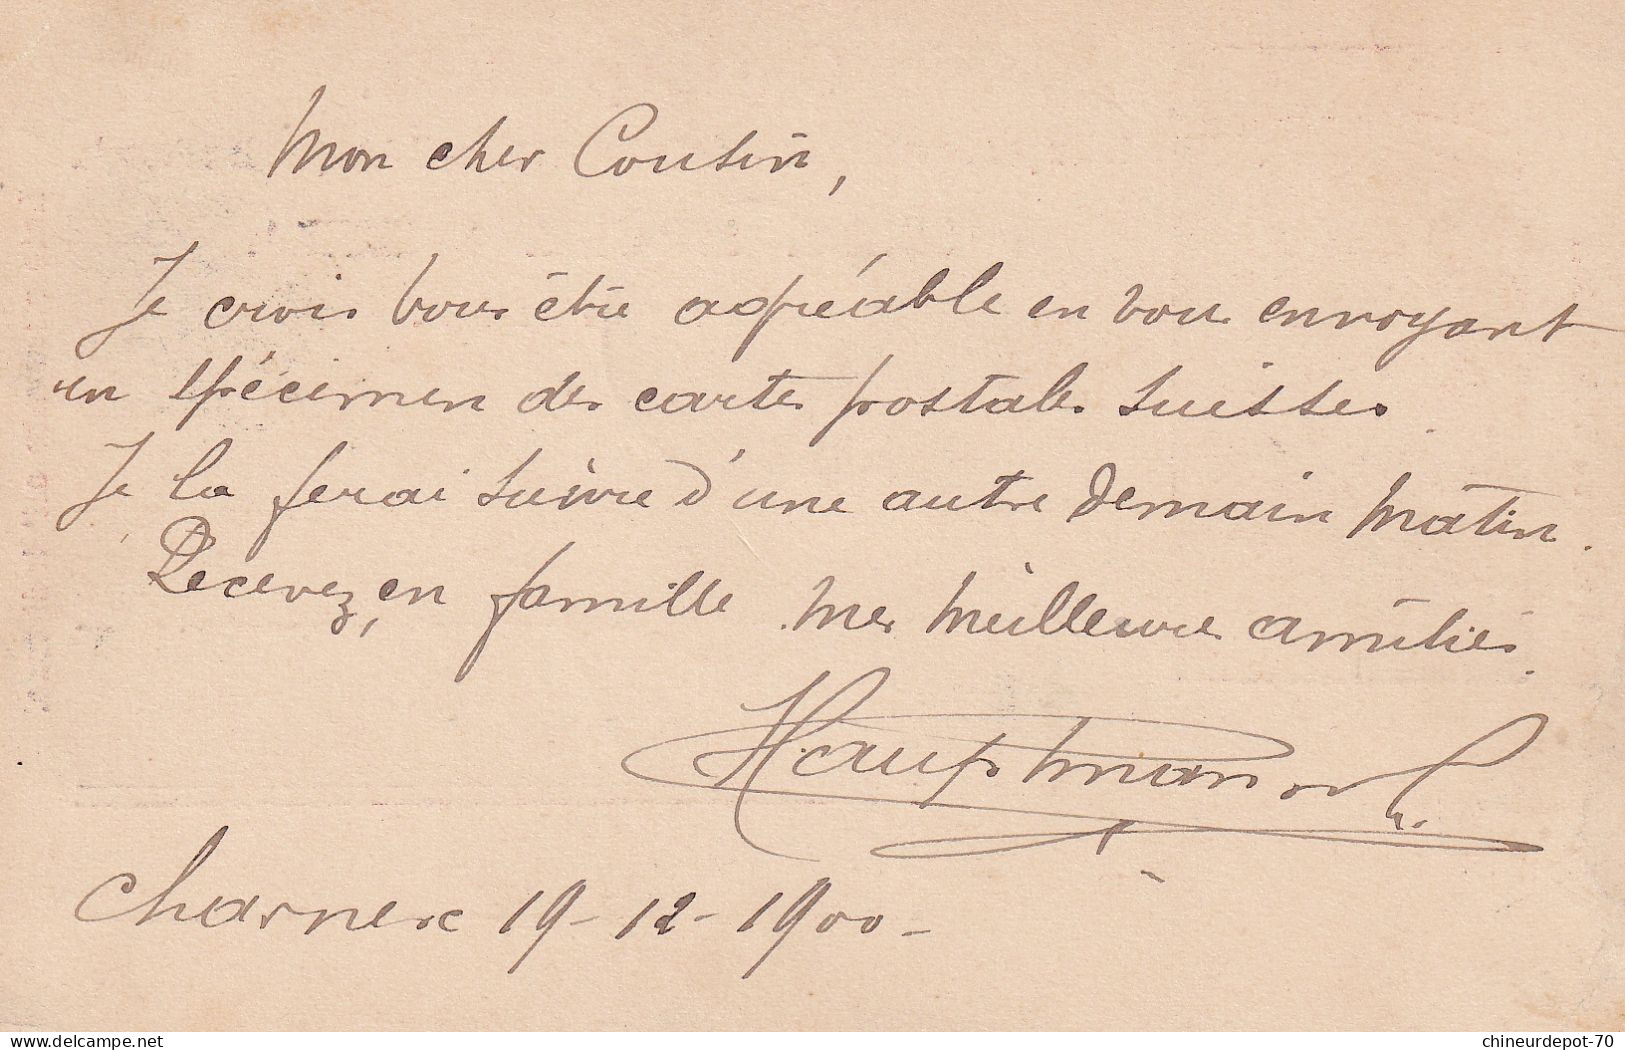 Mon cher Cousin,
Je crois vous être agréable en vous envoyant
un spécimen des cartes postales suisses.
Je la ferai suivre d'une autre demain matin.
Recevez, en famille mes meilleures amitiés.
Hauptmann
Charnex 19-12-1900-
delcampe.net
chineurdepot-70